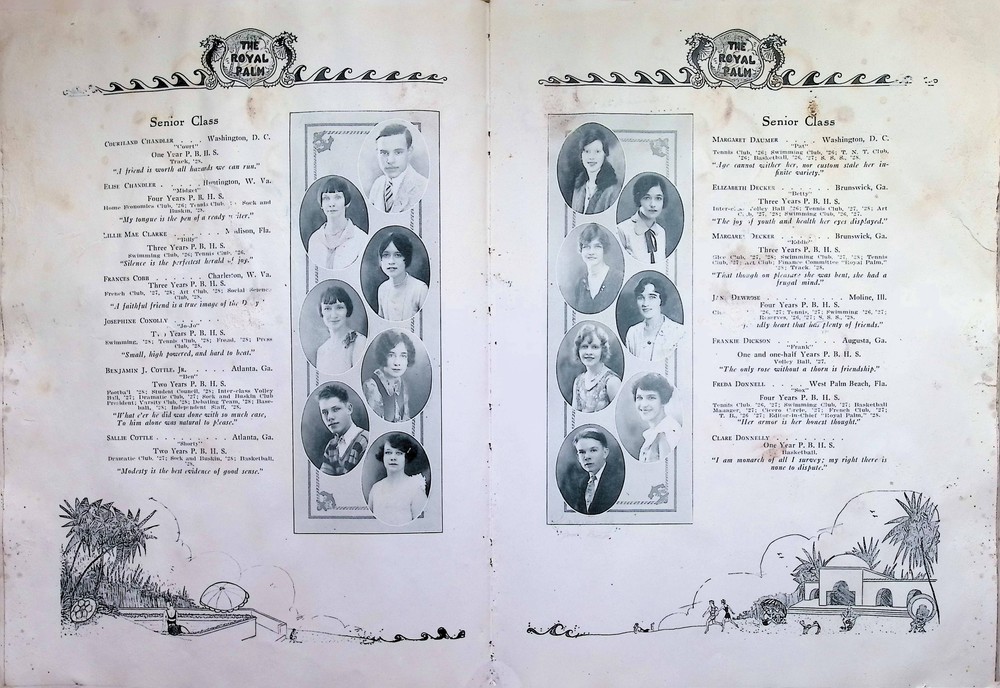 THE
ROYAL
PALM
Senior Class
COURTLAND CHANDLER . . . . Washington, D. C.
"Court"
One Year P. B. H. S.
Track, '28.
"A friend is worth all hazards we can run."
ELISE CHANDLER . . . . . Huntington, W. Va.
"Midget"
Four Years P. B. H. S.
Home Economics Club, '26; Tennis Club, Sock and
Buskin, '28.
"My tongue is the pen of a ready
LILLIE MAE CLARKE . . . . Fla.
"Billy"
Three Years P. B. H. S.
Swimming Club, '26; Tennis Club, '26.
"Silence is the perfectest herald of joy."
FRANCES COBB . . . . Charleston, W. Va.
Three Years P. B. H. S.
French Club, '27, '28; Art Club, '28; Social Science
Club, '28.
"A faithful friend is a true image of the
JOSEPHINE CONOLLY . . . .
"Jo-Jo"
Years P. B. H. S.
Swimming, '28; Tennis Club, '28; Press
Club, '28.
"Small, high powered, and hard to beat."
BENJAMIN J. COTTLE, JR. . . . . Atlanta, Ga.
"Ben"
Two Years P. B. H. S.
Football '28; Student Council, '28; Inter-class Volley
Ball, '27; Dramatic Club, '27; Sock and Buskin Club
President; Varsity Club, '28; Debating Team, '28; Base-
ball, '28; Independent Staff, '28.
"What e'er he did was done with so much ease,
To him alone was natural to please."
SALLIE COTTLE . . . . . . . . Atlanta, Ga.
"Shorty"
Two Years P. B. H. S.
Dramatic Club, '27; Sock and Buskin, '28; Basketball,
'28.
"Modesty is the best evidence of good sense."
THE
ROYAL
PALM
Senior Class
MARGARET DAUMER . . Washington, D. C.
"Pat"
Tennis Club, '26; Swimming Club, '26; T. N. T. Club,
'26; Basketball, '26, '27; S. S. S., '28.
"Age cannot wither her, nor custom stale her in-
finite variety."
ELIZABETH DECKER . . . . . . Brunswick, Ga.
"Betty"
Three Years P. B. H. S.
Volley Ball '26; Tennis Club, '27, '28; Art
'27, '28; Swimming Club, '26, '27.
"The joy of youth and health her eyes displayed."
MARGARET DECKER . . . . . Brunswick, Ga.
"Eddie"
Three Years P. B. H. S.
Glee Club, '27, '28; Swimming Club, '27, '28; Tennis
Club, '27; Art Club; Finance Committee "Royal Palm,"
'28; Track, '28.
"That though on pleasure she was bent, she had a
frugal mind."
JEN DEWROSE . . . . . Moline, Ill.
Four Years P. B. H. S.
'26, '27; Tennis, '27; Swimming '26, '27;
Reserves, '26, '27; S. S. S., '28.
heart that has plenty of friends."
FRANKIE DICKSON . . . . . Augusta, Ga.
"Frank"
One and one-half Years P. B. H. S.
Volley Ball, '27.
"The only rose without a thorn is friendship."
FREDA DONNELL . . . . West Palm Beach, Fla.
"Sox"
Four Years P. B. H. S.
Tennis Club, '26, '27; Swimming Club, '27; Basketball
Manager, '27; Cicero Circle, '27; French Club, '27;
T. R., '26 '27; Editor-in-Chief "Royal Palm," '28.
"Her armor is her honest thought."
CLARE DONNELLY . . . . . . . . . .
One Year P. B. H. S.
Basketball.
"I am monarch of all I survey; my right there is
none to dispute."